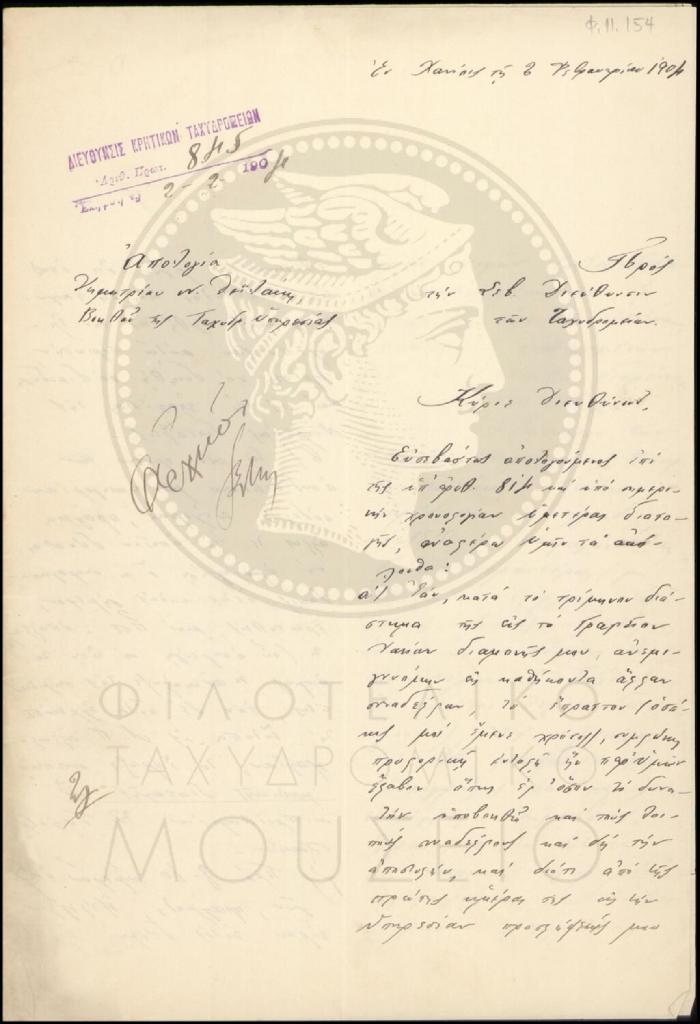 Φ.11.154
Ἐν Χανίοις τῇ 2 Φεβρουαρίου 1904
ΔΙΕΥΘΥΝΣΙΣ ΚΡΗΤΙΚΩΝ ΤΑΧΥΔΡΟΜΕΙΩΝ
Ἀριθ. Πρωτ. 845
2-2-1904
Ἀπολογία
Δημητρίου Ν.
Βοηθοῦ τῆς Ταχυδρ. Ὑπηρεσίας
Πρὸς
τὴν Σεβ. Διεύθυνσιν
τῶν Ταχυδρομείων.
Κύριε Διευθυντά,
Εὐσεβάστως ἀπολογούμενος ἐπὶ
τῆς ὑπ' ἀριθ. 814 καὶ ὑπὸ σημερι-
νὴν χρονολογίαν ὑμετέρας διατα-
γῆς, ἀναφέρω ὑμῖν τὰ ἀκό-
λουθα:
α) Ἐάν, κατὰ τὸ τρίμηνον διά-
στημα τῆς εἰς τὸ Γραφεῖον
Χανίων διαμονῆς μου, ἀνεμι-
γνυόμην εἰς καθήκοντα ἄλλων
συναδέλφων, τὸ ἔπραττον ὁσά-
κις μοὶ ἔμενε χρόνος, συμφώνως
προφορικῇ ἐντολῇ ἣν παρ' ὑμῶν
ἔλαβον ὅπως ἐφ' ὅσον τὸ δυνα-
τὸν ὑποβοηθῶ καὶ τοὺς λοι-
ποὺς συναδέλφους καὶ δὴ τὴν
ἀποστολήν, καὶ διότι ἀπὸ τῆς
πρώτης ἡμέρας τῆς εἰς τὴν
Ὑπηρεσίαν προσλήψεώς μου
ΦΙΛΟΤΕΛΙΚΟ
ΤΑΧΥΔΡΟΜΙΚΟ
ΜΟΥΣΕΙΟ